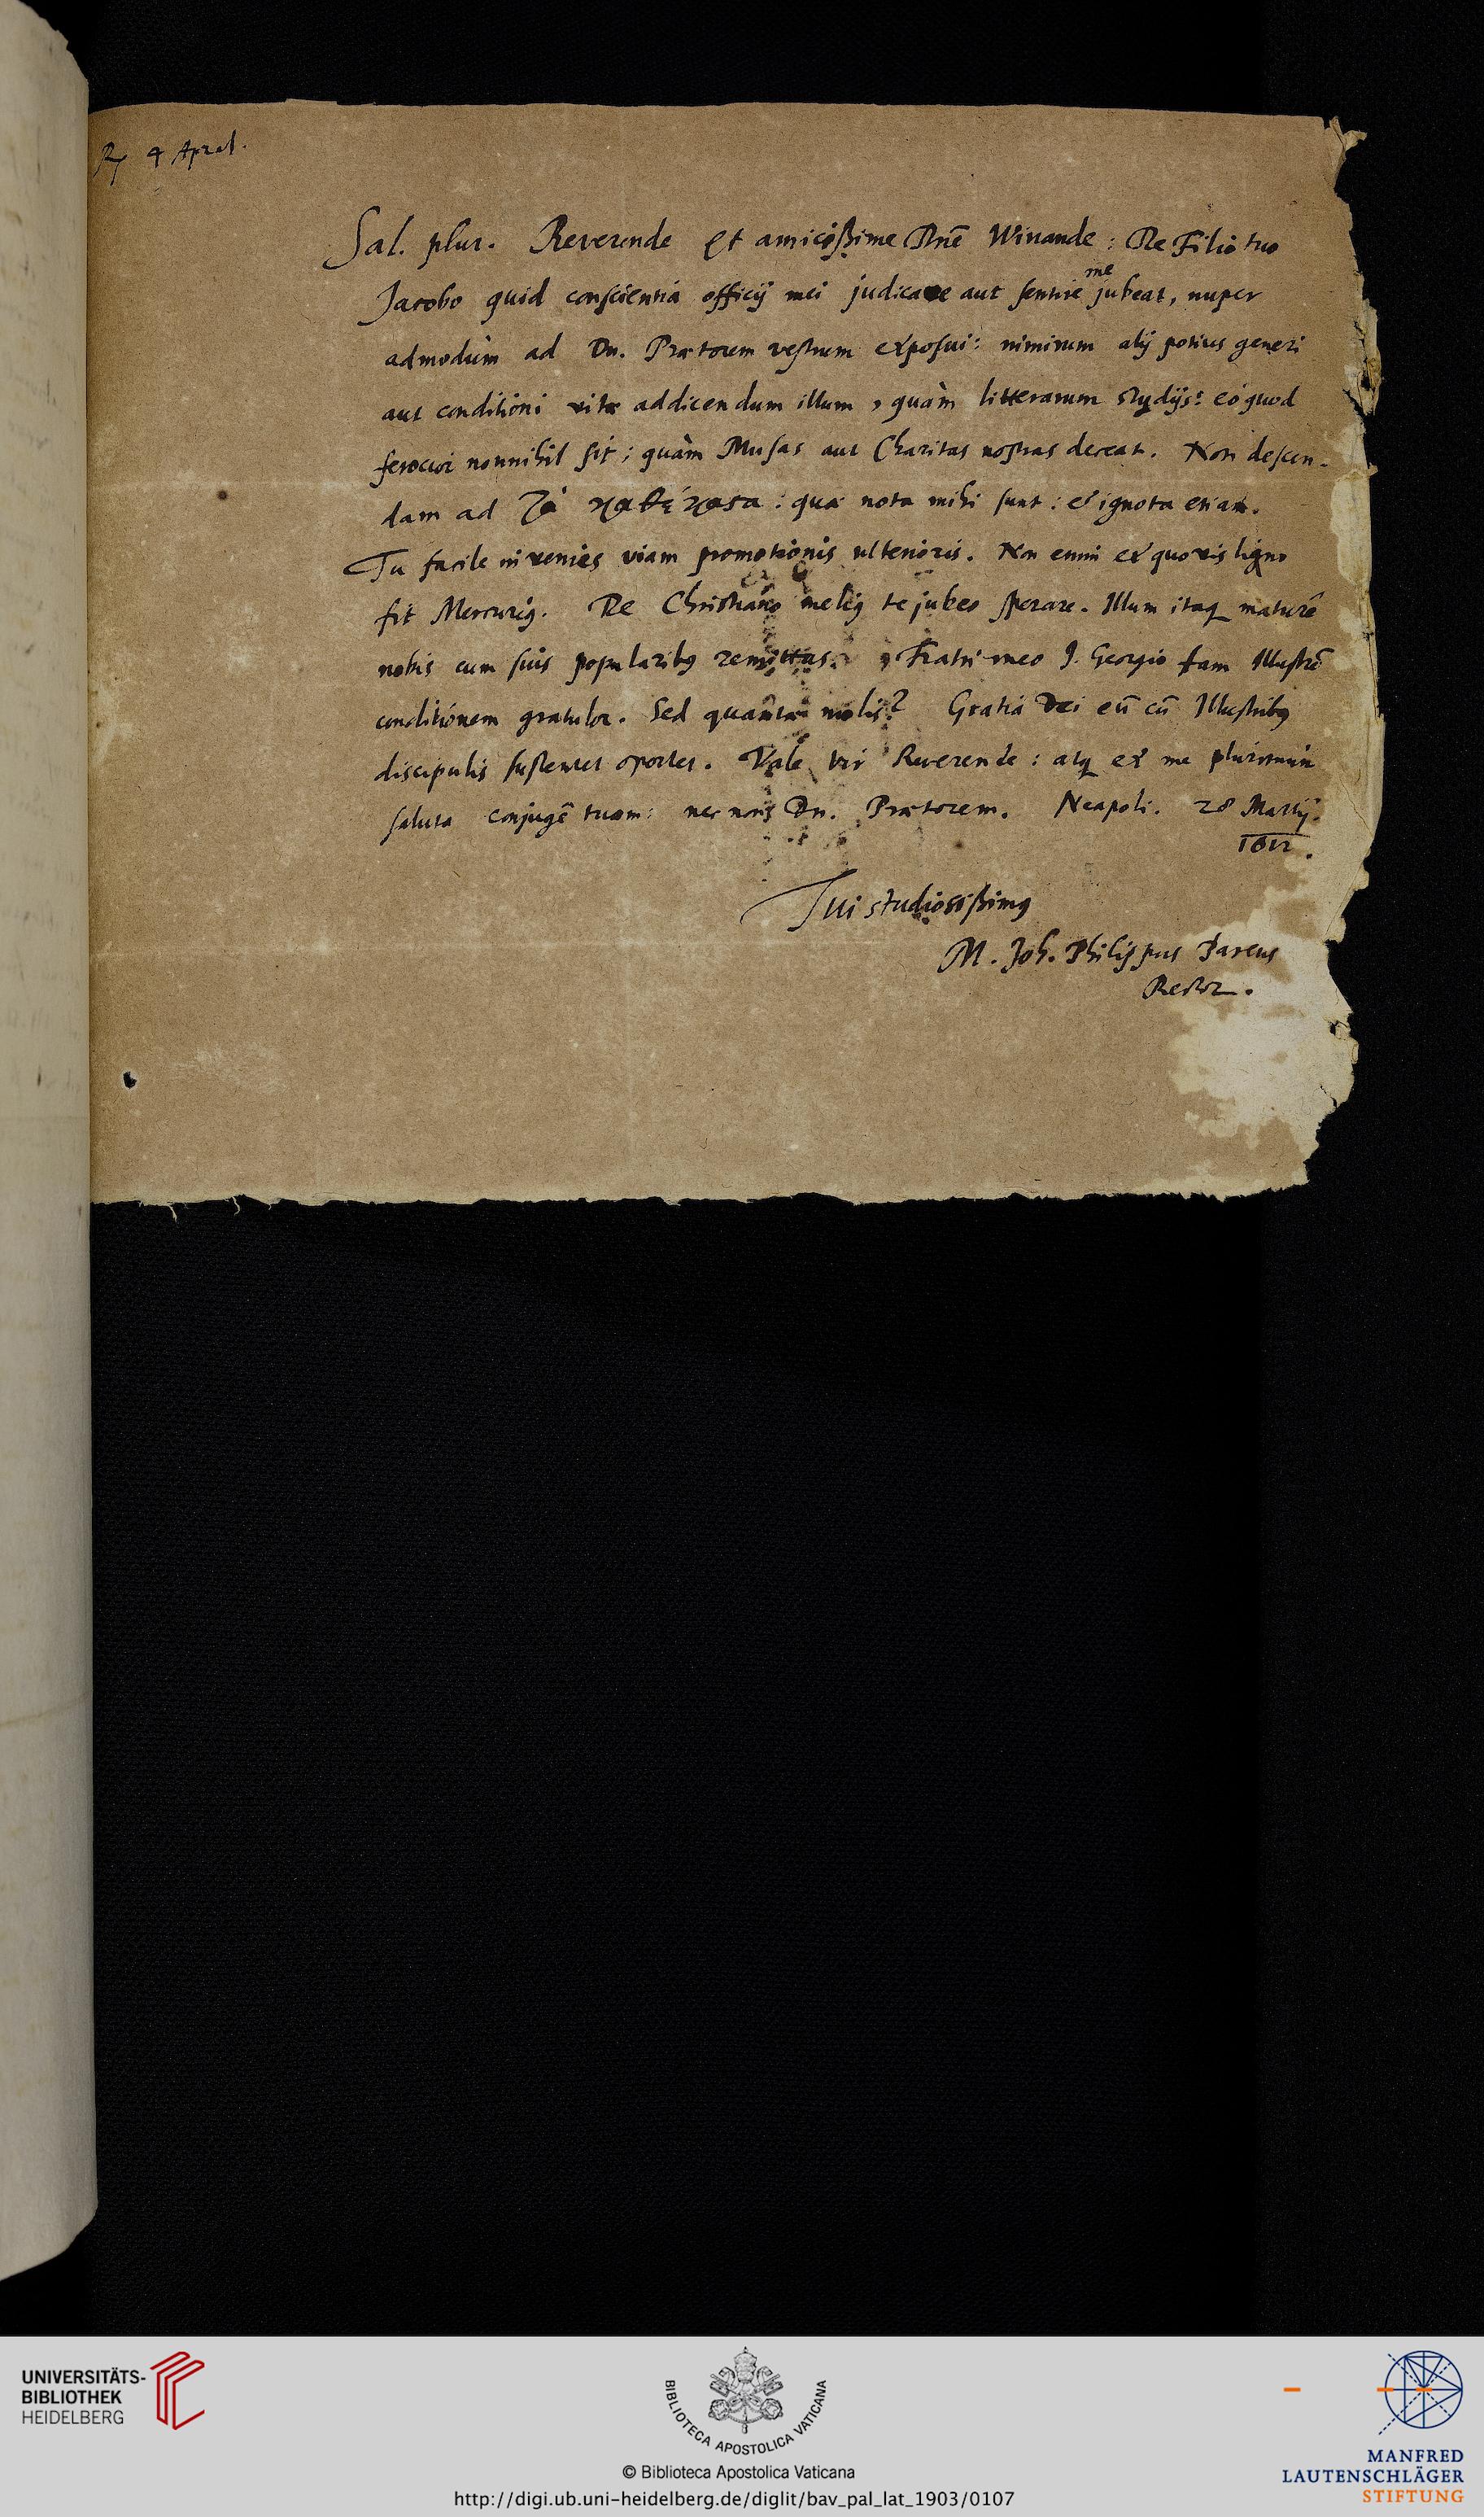 R 4 April.
Sal. plur. Reverende et amicißime Dnē Winande: De Filio tuo
Jacobo quid conscientia officij mei judicare aut sentire me jubeat, nuper
admodùm ad Dn. Prætorem vestrum exposui: nimirum alij potius generi
aut conditioni vitæ addicendum illum, quàm litterarum studijs: eò quod
ferocior nonnihil sit; quàm Musas aut Charitas nostras deceat. Non descen-
dam ad τὰ καθέκαστα: quæ nota mihi sunt: & ignota etiam.
Tu facile invenies viam promotionis ulterioris. Non enim ex quovis ligno
fit Mercurig. De Christiano melig te jubeo sperare. Illum itaq maturè
nobis cum suis popularibg remittas. Fratri meo J. Georgio tam Illustrē
conditionem gratulor. Sed quanta molis? Gratia Dei eū cū Illustribg
discipulis sustentet oportet. Vale vir Reverende: atq ex me plurimùm
saluta conjugē tuam: nec non Dn. Prætorem. Neapoli. 28 Martij.
1612.
Tui studiosißimg
M. Joh. Philippus Pareus
Rector.
UNIVERSITÄTS-
BIBLIOTHEK
HEIDELBERG
BIBLIOTECA APOSTOLICA VATICANA
© Biblioteca Apostolica Vaticana
http://digi.ub.uni-heidelberg.de/diglit/bav_pal_lat_1903/0107
MANFRED
LAUTENSCHLÄGER
STIFTUNG